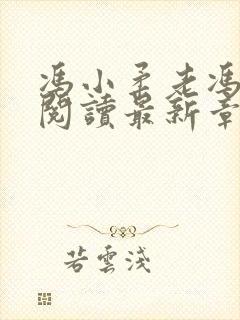 馮小柔老馮
閱讀最新章
若雲淺